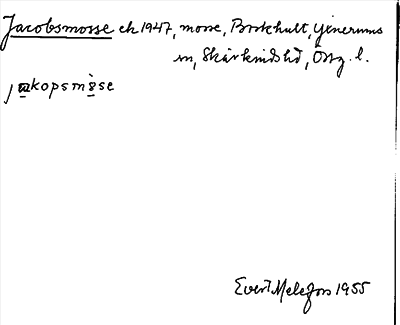 Jacobsmosse ek 1947, mosse, Borkhult, Yxnerums
sn, Skärkinds hd, Östg. l.
jakopsmòse
Evert Melefors 1955